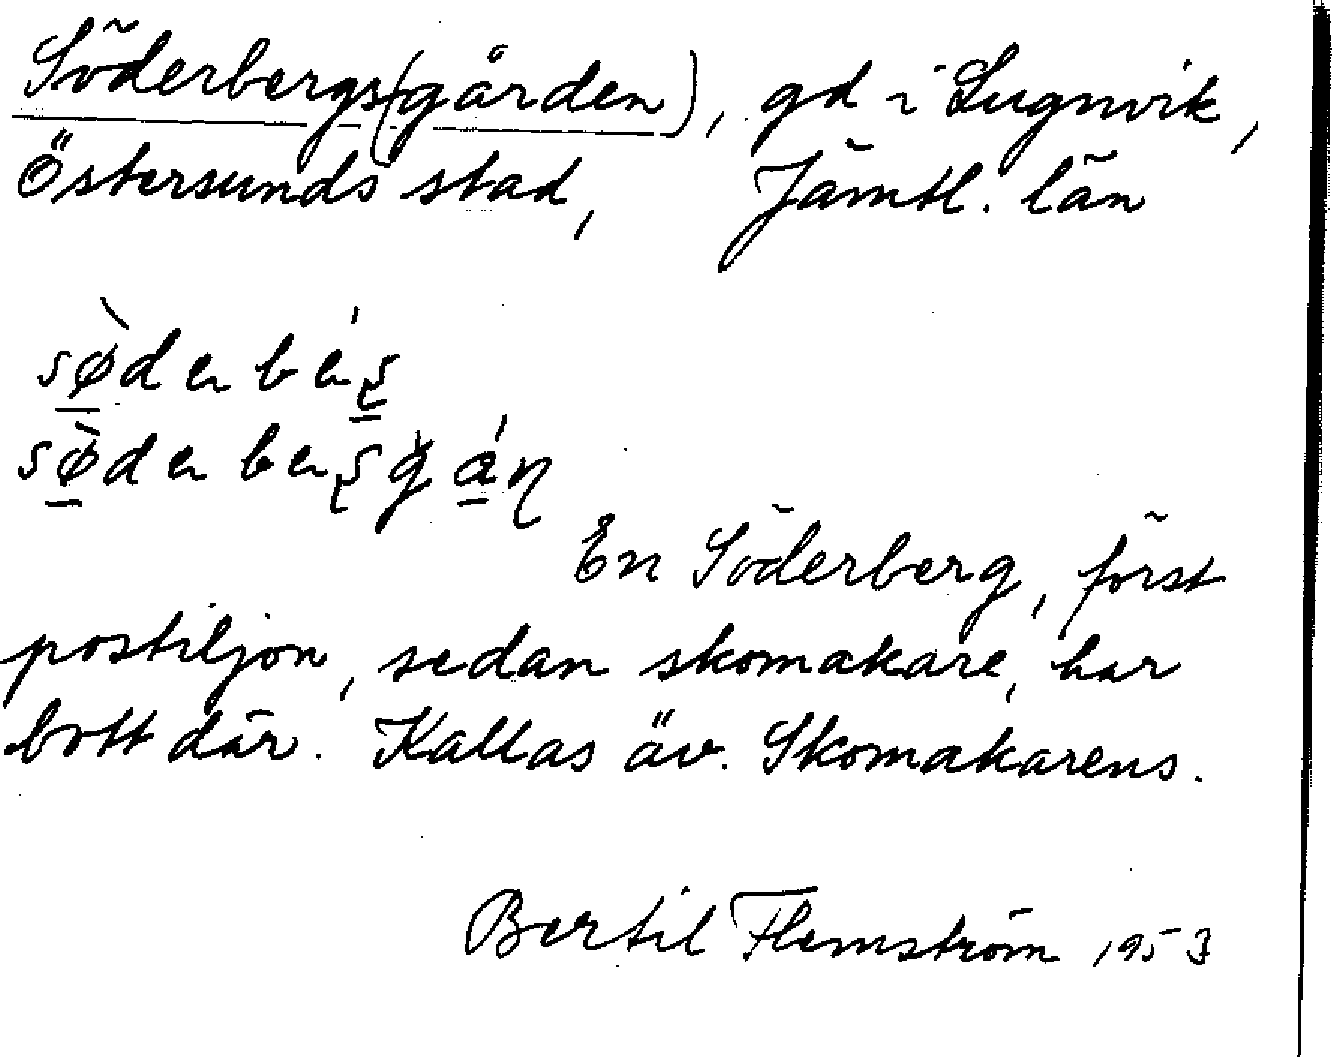 Söderbergs(gården), gd i Lugnvik,
Östersunds stad, Jämtl. län
En Söderberg, först
postiljon, sedan skomakare, har
bott där. Kallas äv. Skomakarens.
Bertil Flemström 1953